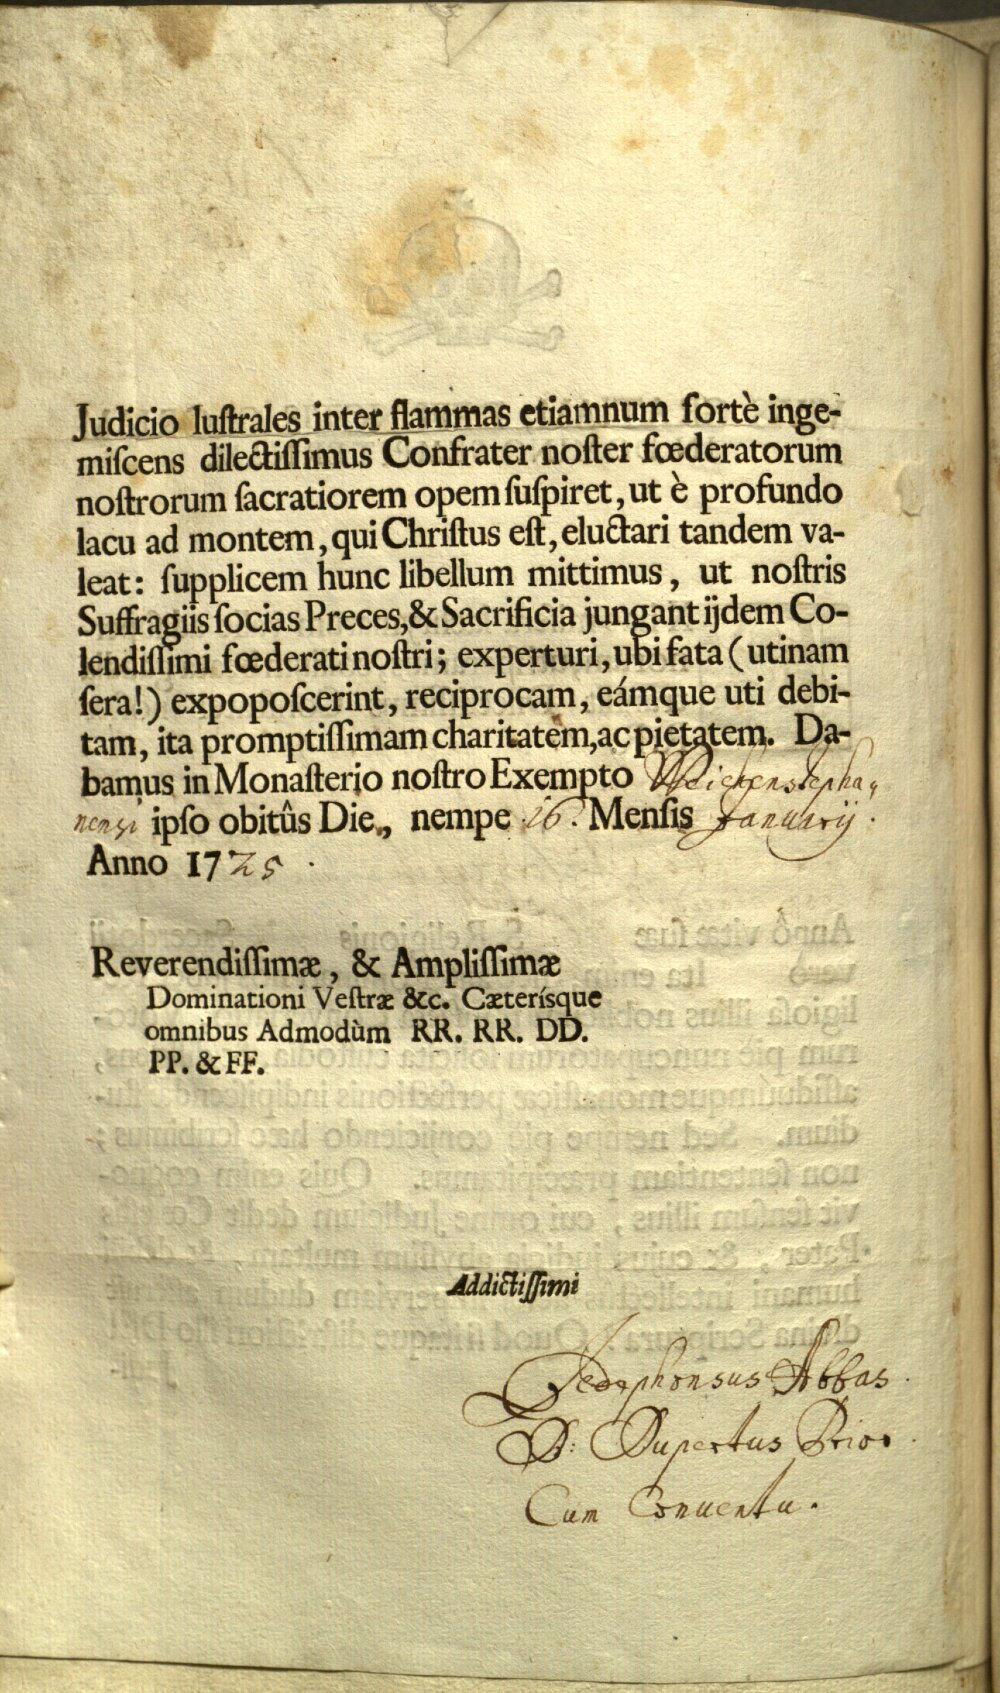 Judicio luſtrales inter flammas etiamnum fortè inge-
miſcens dilectiſſimus Confrater noſter fœderatorum
noſtrorum ſacratiorem opem ſuſpiret, ut è profundo
lacu ad montem, qui Chriſtus eſt, eluctari tandem va-
leat: ſupplicem hunc libellum mittimus, ut noſtris
Suffragiis ſocias Preces, & Sacrificia jungant ijdem Co-
lendiſſimi fœderati noſtri; experturi, ubi fata (utinam
ſera!) expopoſcerint, reciprocam, eámque uti debi-
tam, ita promptiſſimam charitatem, ac pietatem. Da-
bamus in Monaſterio noſtro Exempto Weichenstepha,
nensi ipſo obitûs Die, nempe 16. Menſis Januarij.
Anno 1725.
Reverendiſſimæ, & Ampliſſimæ
Dominationi Veſtræ &c. Cæterísque
omnibus Admodùm RR. RR. DD.
PP. & FF.
Addictiſſimi
Abbas.
P: Rupertus Prior.
Cum Conuentu.